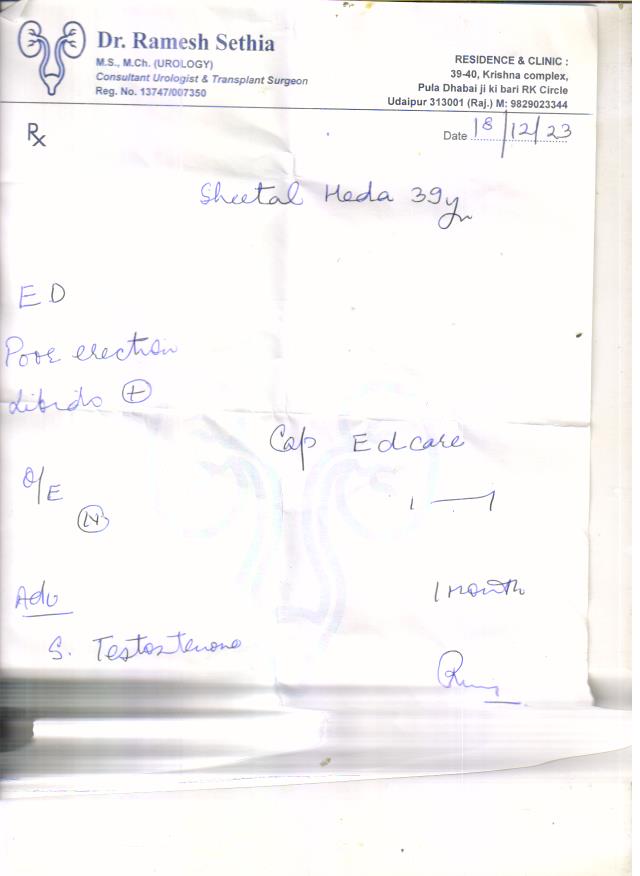 Dr. Ramesh Sethia
M.S., M.Ch. (UROLOGY)
Consultant Urologist & Transplant Surgeon
Reg. No. 13747/007350
RESIDENCE & CLINIC :
39-40, Krishna complex,
Pula Dhabai ji ki bari RK Circle
Udaipur 313001 (Raj.) M: 9829023344
Rx
Date 18/12/23
Sheetal Heda 39yr
ED
Poor erection
Libido +
Cap Edcare
O/E
N
1 — 1
Adv
1 month
S. Testosterone